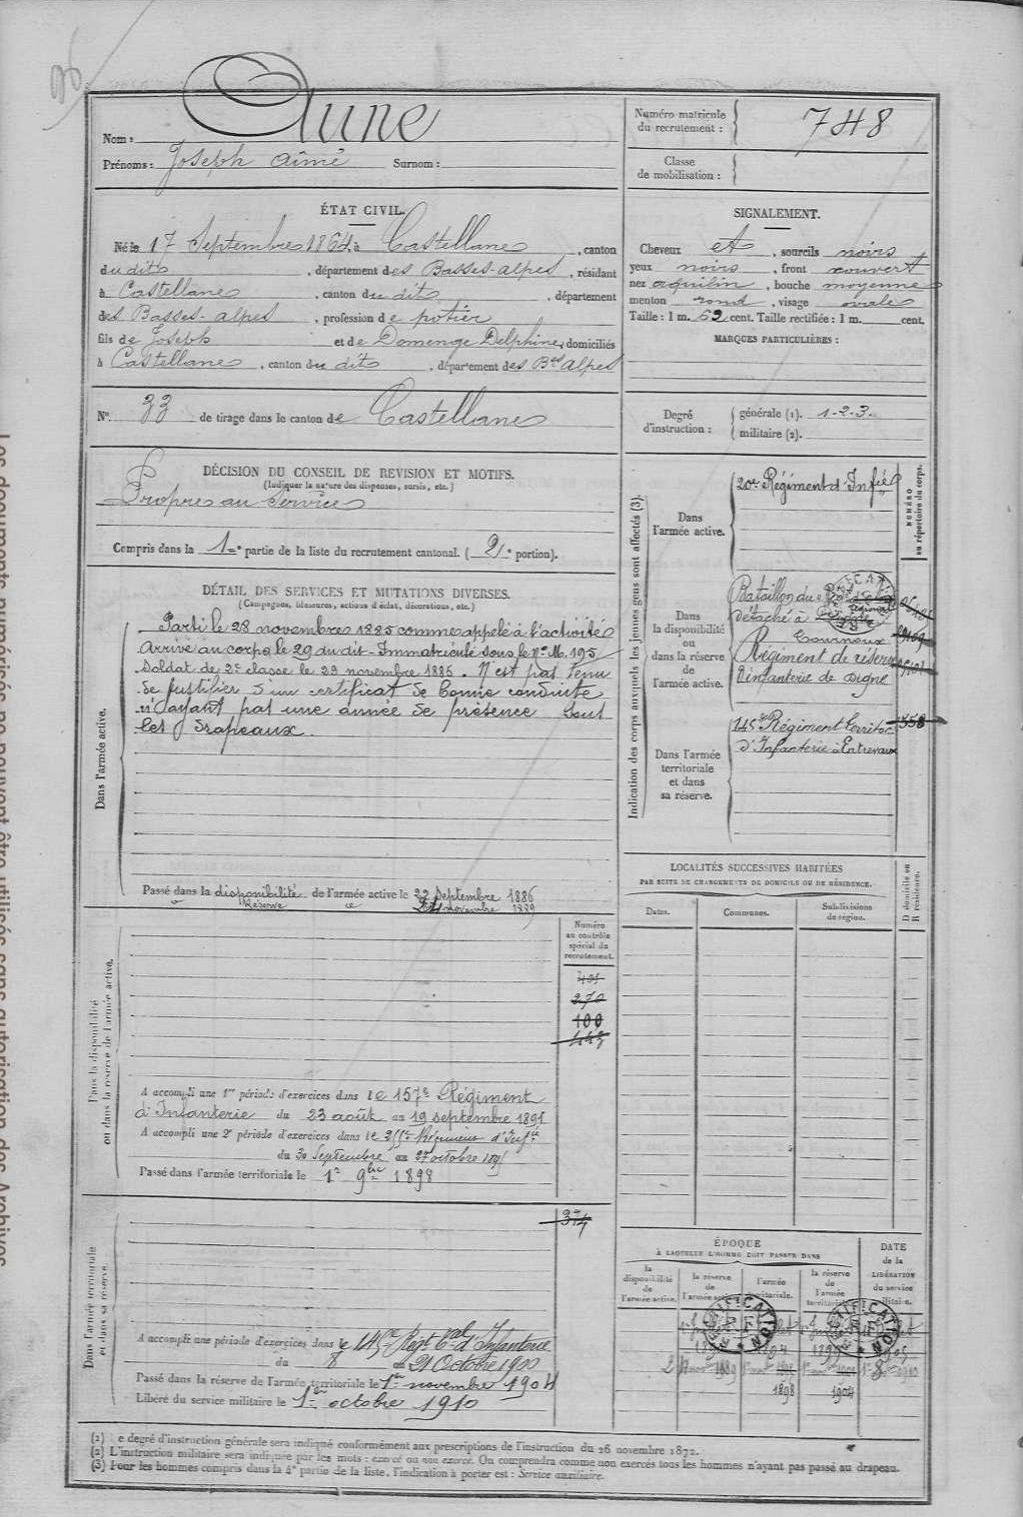 96
Nom : Aune
Prénoms : Joseph Aimé Surnom :
Numéro matricule du recrutement : 748
Classe de mobilisation :
ÉTAT CIVIL.
Né le 17 Septembre 1864 à Castellane, canton
du dit, département des Basses-Alpes, résidant
à Castellane, canton du dit, département
des Basses-Alpes, profession de potier
fils de Joseph et de Domenge Delphine, domiciliés
à Castellane, canton du dit, département des Bses Alpes
N° 33 de tirage dans le canton de Castellane
SIGNALEMENT.
Cheveux et, sourcils noirs
yeux noirs, front couvert
nez aquilin, bouche moyenne
menton rond, visage ovale
Taille : 1 m. 62 cent. Taille rectifiée : 1 m. cent.
MARQUES PARTICULIÈRES :
Degré d'instruction : générale (1). 1-2-3.
militaire (2).
DÉCISION DU CONSEIL DE REVISION ET MOTIFS.
(Indiquer la nature des dispenses, sursis, etc.)
Propre au Service
Compris dans la 1re partie de la liste du recrutement cantonal. (2e portion).
DÉTAIL DES SERVICES ET MUTATIONS DIVERSES.
(Campagnes, blessures, actions d'éclat, décorations, etc.)
Dans l'armée active.
Parti le 28 novembre 1885 comme appelé à l'activité
Arrivé au corps le 29 du dit - Immatriculé sous le N° M. 195
Soldat de 2e classe le 29 novembre 1885. N'est pas tenu
de justifier d'un certificat de bonne conduite
n'ayant pas une année de présence sous
les drapeaux.
Passé dans la disponibilité de l'armée active le 22 Septembre 1886
Réserve novembre 1889
Indication des corps auxquels les jeunes gens sont affectés (3).
NUMÉRO au répertoire du corps.
Dans l'armée active.
20e Régiment d'Infie
Dans la disponibilité ou dans la réserve de l'armée active.
Bataillon du
détaché à
Tournoux
Régiment de réserve
d'infanterie de Digne
Dans l'armée territoriale et dans sa réserve.
145e Régiment territ.
d'Infanterie à Entrevaux
358
LOCALITÉS SUCCESSIVES HABITÉES
PAR SUITE DE CHANGEMENTS DE DOMICILE OU DE RÉSIDENCE.
Dates. Communes. Subdivisions de région. D domicile ou R résidence.
Dans la disponibilité ou dans la réserve de l'armée active.
Numéro au contrôle spécial du recrutement.
270
100
443
A accompli une 1re période d'exercices dans le 157e Régiment
d'Infanterie du 23 août au 19 septembre 1891
A accompli une 2e période d'exercices dans le Régiment d'Infie
du 30 Septembre au 27 octobre
Passé dans l'armée territoriale le 1er 9bre 1898
Dans l'armée territoriale et dans sa réserve.
374
A accompli une période d'exercices dans le 145e Regt Tal d'Infanterie
du 8 au 21 Octobre 1900
Passé dans la réserve de l'armée territoriale le 1er novembre 1904
Libéré du service militaire le 1er octobre 1910
ÉPOQUE
À LAQUELLE L'HOMME DOIT PASSER DANS
la disponibilité de l'armée active. la réserve de l'armée active l'armée territoriale. la réserve de l'armée territoriale
DATE de la LIBÉRATION du service militaire.
1898 1904
(1) e degré d'instruction générale sera indiqué conformément aux prescriptions de l'instruction du 26 novembre 1872.
(2) L'instruction militaire sera indiquée par les mots : exercé ou non exercé. On comprendra comme non exercés tous les hommes n'ayant pas passé au drapeau.
(3) Pour les hommes compris dans la 4e partie de la liste, l'indication à porter est : Service auxiliaire.